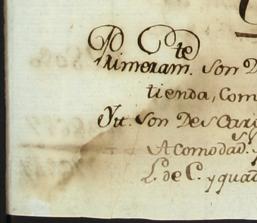 Primeram.te son D
tienda, Com
Yt. son Des Car
Acomodad.
L. de C. y qua